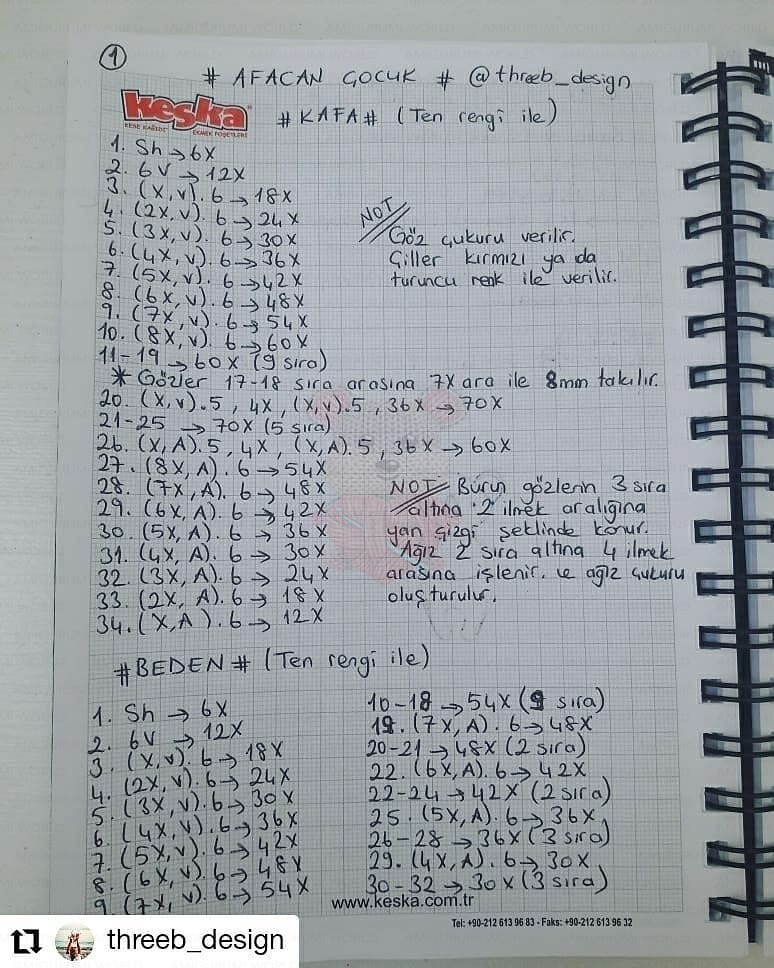 1
# AFACAN ÇOCUK # @threeb_design
keska
KESE KAĞIDI
EKMEK POŞETLERİ
#KAFA# (Ten rengi ile)
1. Sh → 6X
2. 6V → 12X
3. (X,V). 6 → 18X
4. (2X,V). 6 → 24X
5. (3X,V). 6 → 30X
6. (4X,V). 6 → 36X
7. (5X,V). 6 → 42X
8. (6X,V). 6 → 48X
9. (7X,V). 6 → 54X
10. (8X,V). 6 → 60X
11-19 → 60X (9 sıra)
NOT
Göz çukuru verilir.
Çiller kırmızı ya da
turuncu renk ile verilir.
* Gözler 17-18 sıra arasına 7X ara ile 8mm takılır.
20. (X,V).5, 4X, (X,V).5, 36X → 70X
21-25 → 70X (5 sıra)
26. (X,A).5, 4X, (X,A).5, 36X → 60X
27. (8X,A). 6 → 54X
28. (7X,A). 6 → 48X
29. (6X,A). 6 → 42X
30. (5X,A). 6 → 36X
31. (4X,A). 6 → 30X
32. (3X,A). 6 → 24X
33. (2X,A). 6 → 18X
34. (X,A). 6 → 12X
NOT Burun gözlerin 3 sıra
altına 2 ilmek aralığına
yan çizgi şeklinde konur.
Ağız 2 sıra altına 4 ilmek
arasına işlenir. ve ağız çukuru
oluşturulur.
#BEDEN# (Ten rengi ile)
1. Sh → 6X
2. 6V → 12X
3. (X,V). 6 → 18X
4. (2X,V). 6 → 24X
5. (3X,V). 6 → 30X
6. (4X,V). 6 → 36X
7. (5X,V). 6 → 42X
8. (6X,V). 6 → 48X
9. (7X,V). 6 → 54X
10-18 → 54X (9 sıra)
19. (7X,A). 6 → 48X
20-21 → 48X (2 sıra)
22. (6X,A). 6 → 42X
22-24 → 42X (2 sıra)
25. (5X,A). 6 → 36X
26-28 → 36X (3 sıra)
29. (4X,A). 6 → 30X
30-32 → 30X (3 sıra)
www.keska.com.tr
Tel: +90-212 613 96 83 - Faks: +90-212 613 96 32
threeb_design